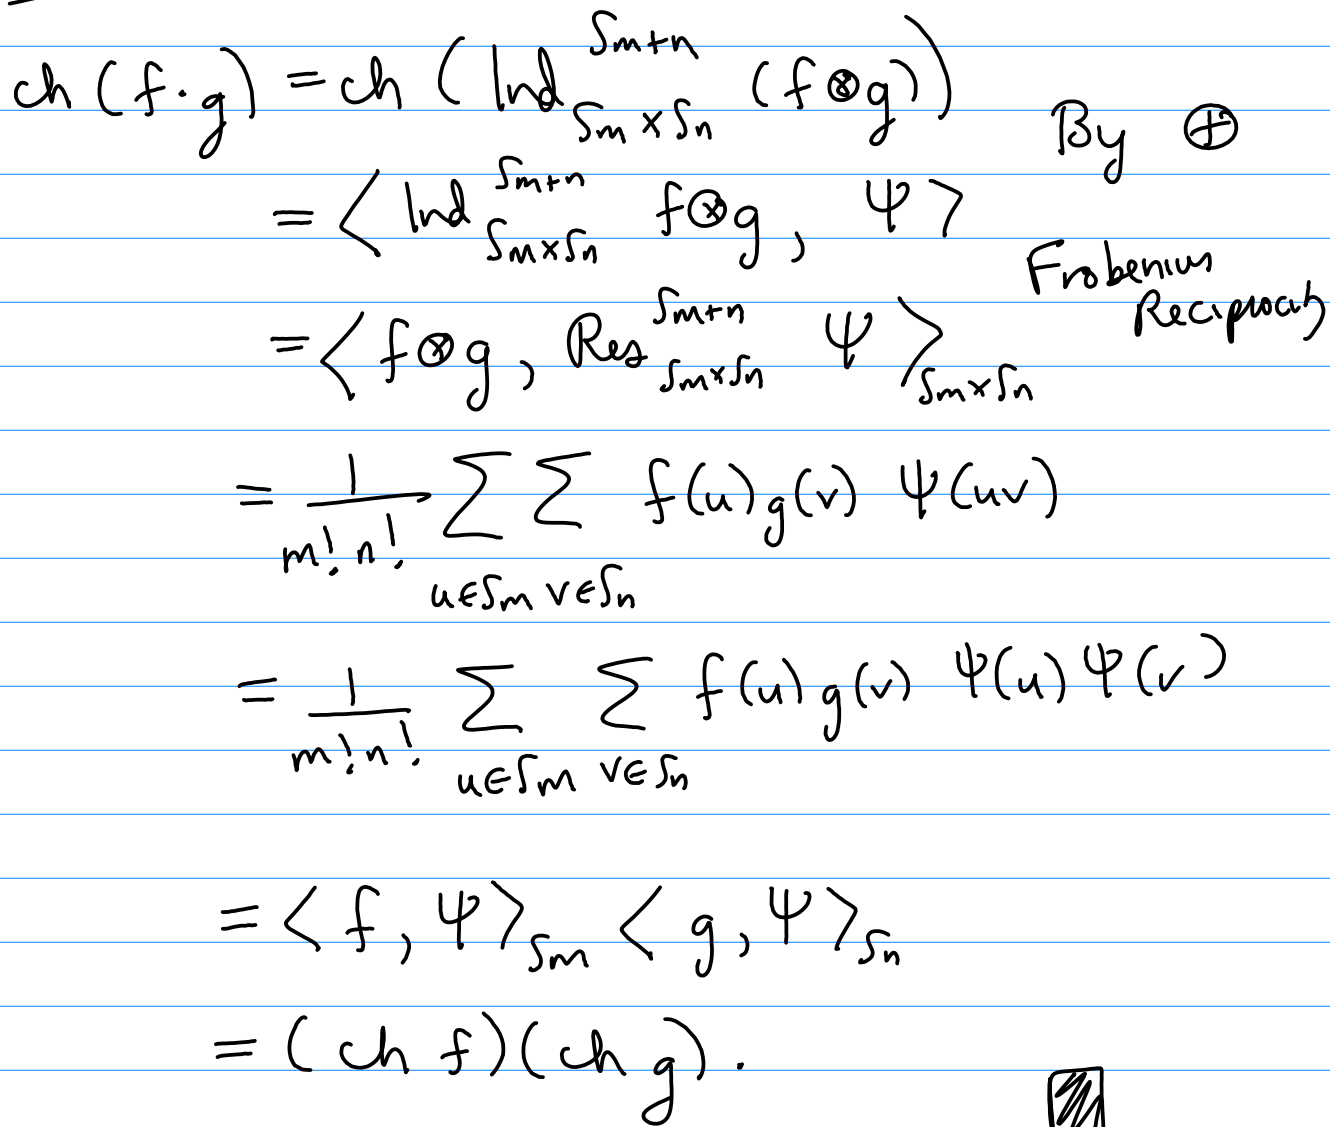 ch (f·g) = ch (Ind_{Sm×Sn}^{Sm+n} (f⊗g)) By ⊕
= <Ind_{Sm×Sn}^{Sm+n} f⊗g, Ψ>
Frobenius
Reciprocity
= <f⊗g, Res_{Sm×Sn}^{Sm+n} Ψ>_{Sm×Sn}
= 1/(m!n!) Σ_{u∈Sm} Σ_{v∈Sn} f(u)g(v) Ψ(uv)
= 1/(m!n!) Σ_{u∈Sm} Σ_{v∈Sn} f(u)g(v) Ψ(u)Ψ(v)
= <f, Ψ>_{Sm} <g, Ψ>_{Sn}
= (ch f)(ch g).